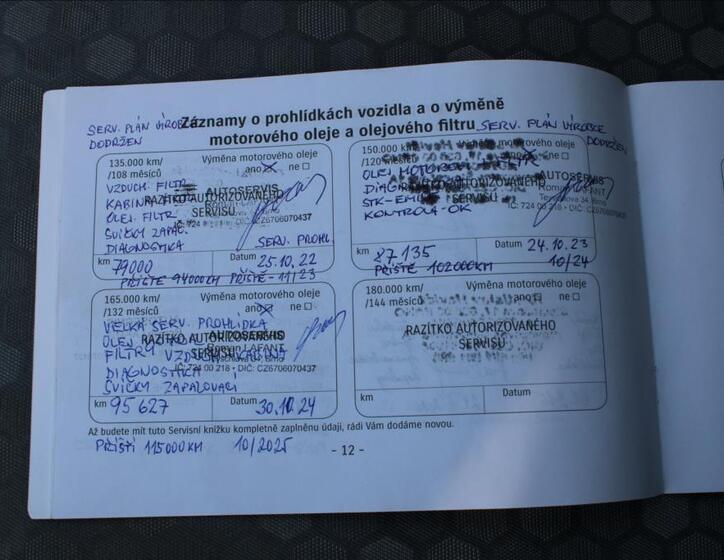 SERV. PLÁN VÝROBCE
DODRŽEN
Záznamy o prohlídkách vozidla a o výměně
motorového oleje a olejového filtru
SERV. PLÁN VÝROBCE
DODRŽEN
135.000 km/
/108 měsíců
Výměna motorového oleje
ano ne
VZDUCH. FILTR
KABIN
OLEJ. FILTR
SVÍČKY ZAPAL.
DIAGNOSTIKA
AUTOSERVIS
RAZÍTKO AUTORIZOVANÉHO
SERVISU
IČ: 724 00 218 • DIČ: CZ6706070437
SERV. PROHL.
km 79000
Datum 25.10.22
PŘÍŠTĚ 94000KM PŘÍŠTĚ - 11/23
150.000 km/
/120 měsíců
Výměna motorového oleje
ne
OLEJ MOTOROV
DIAG
STK-EMI
KONTROLA-OK
AUTOSERVIS
RAZÍTKO AUTORIZOVANÉHO
Roman LAFANT
SERVISU
34, Brno
IČ: 724 00 218 • DIČ: CZ6706070437
km 87135
Datum 24.10.23
PŘÍŠTĚ 102000KM 10/24
165.000 km/
/132 měsíců
Výměna motorového oleje
ano ne
VELKÁ SERV. PROHLÍDKA
OLEJ
FILTRY VZDUCH KABINA
DIAGNOSTIKA
SVÍČKY ZAPALOVACÍ
AUTOSERVIS
RAZÍTKO AUTORIZOVANÉHO
Roman LAFANT
SERVISU
IČ: 724 00 218 • DIČ: CZ6706070437
km 95627
Datum 30.10.24
180.000 km/
/144 měsíců
Výměna motorového oleje
ano ne
RAZÍTKO AUTORIZOVANÉHO
SERVISU
km
Datum
Až budete mít tuto Servisní knížku kompletně zaplněnu údaji, rádi Vám dodáme novou.
PŘÍŠTÍ 115000KM 10/2025
- 12 -